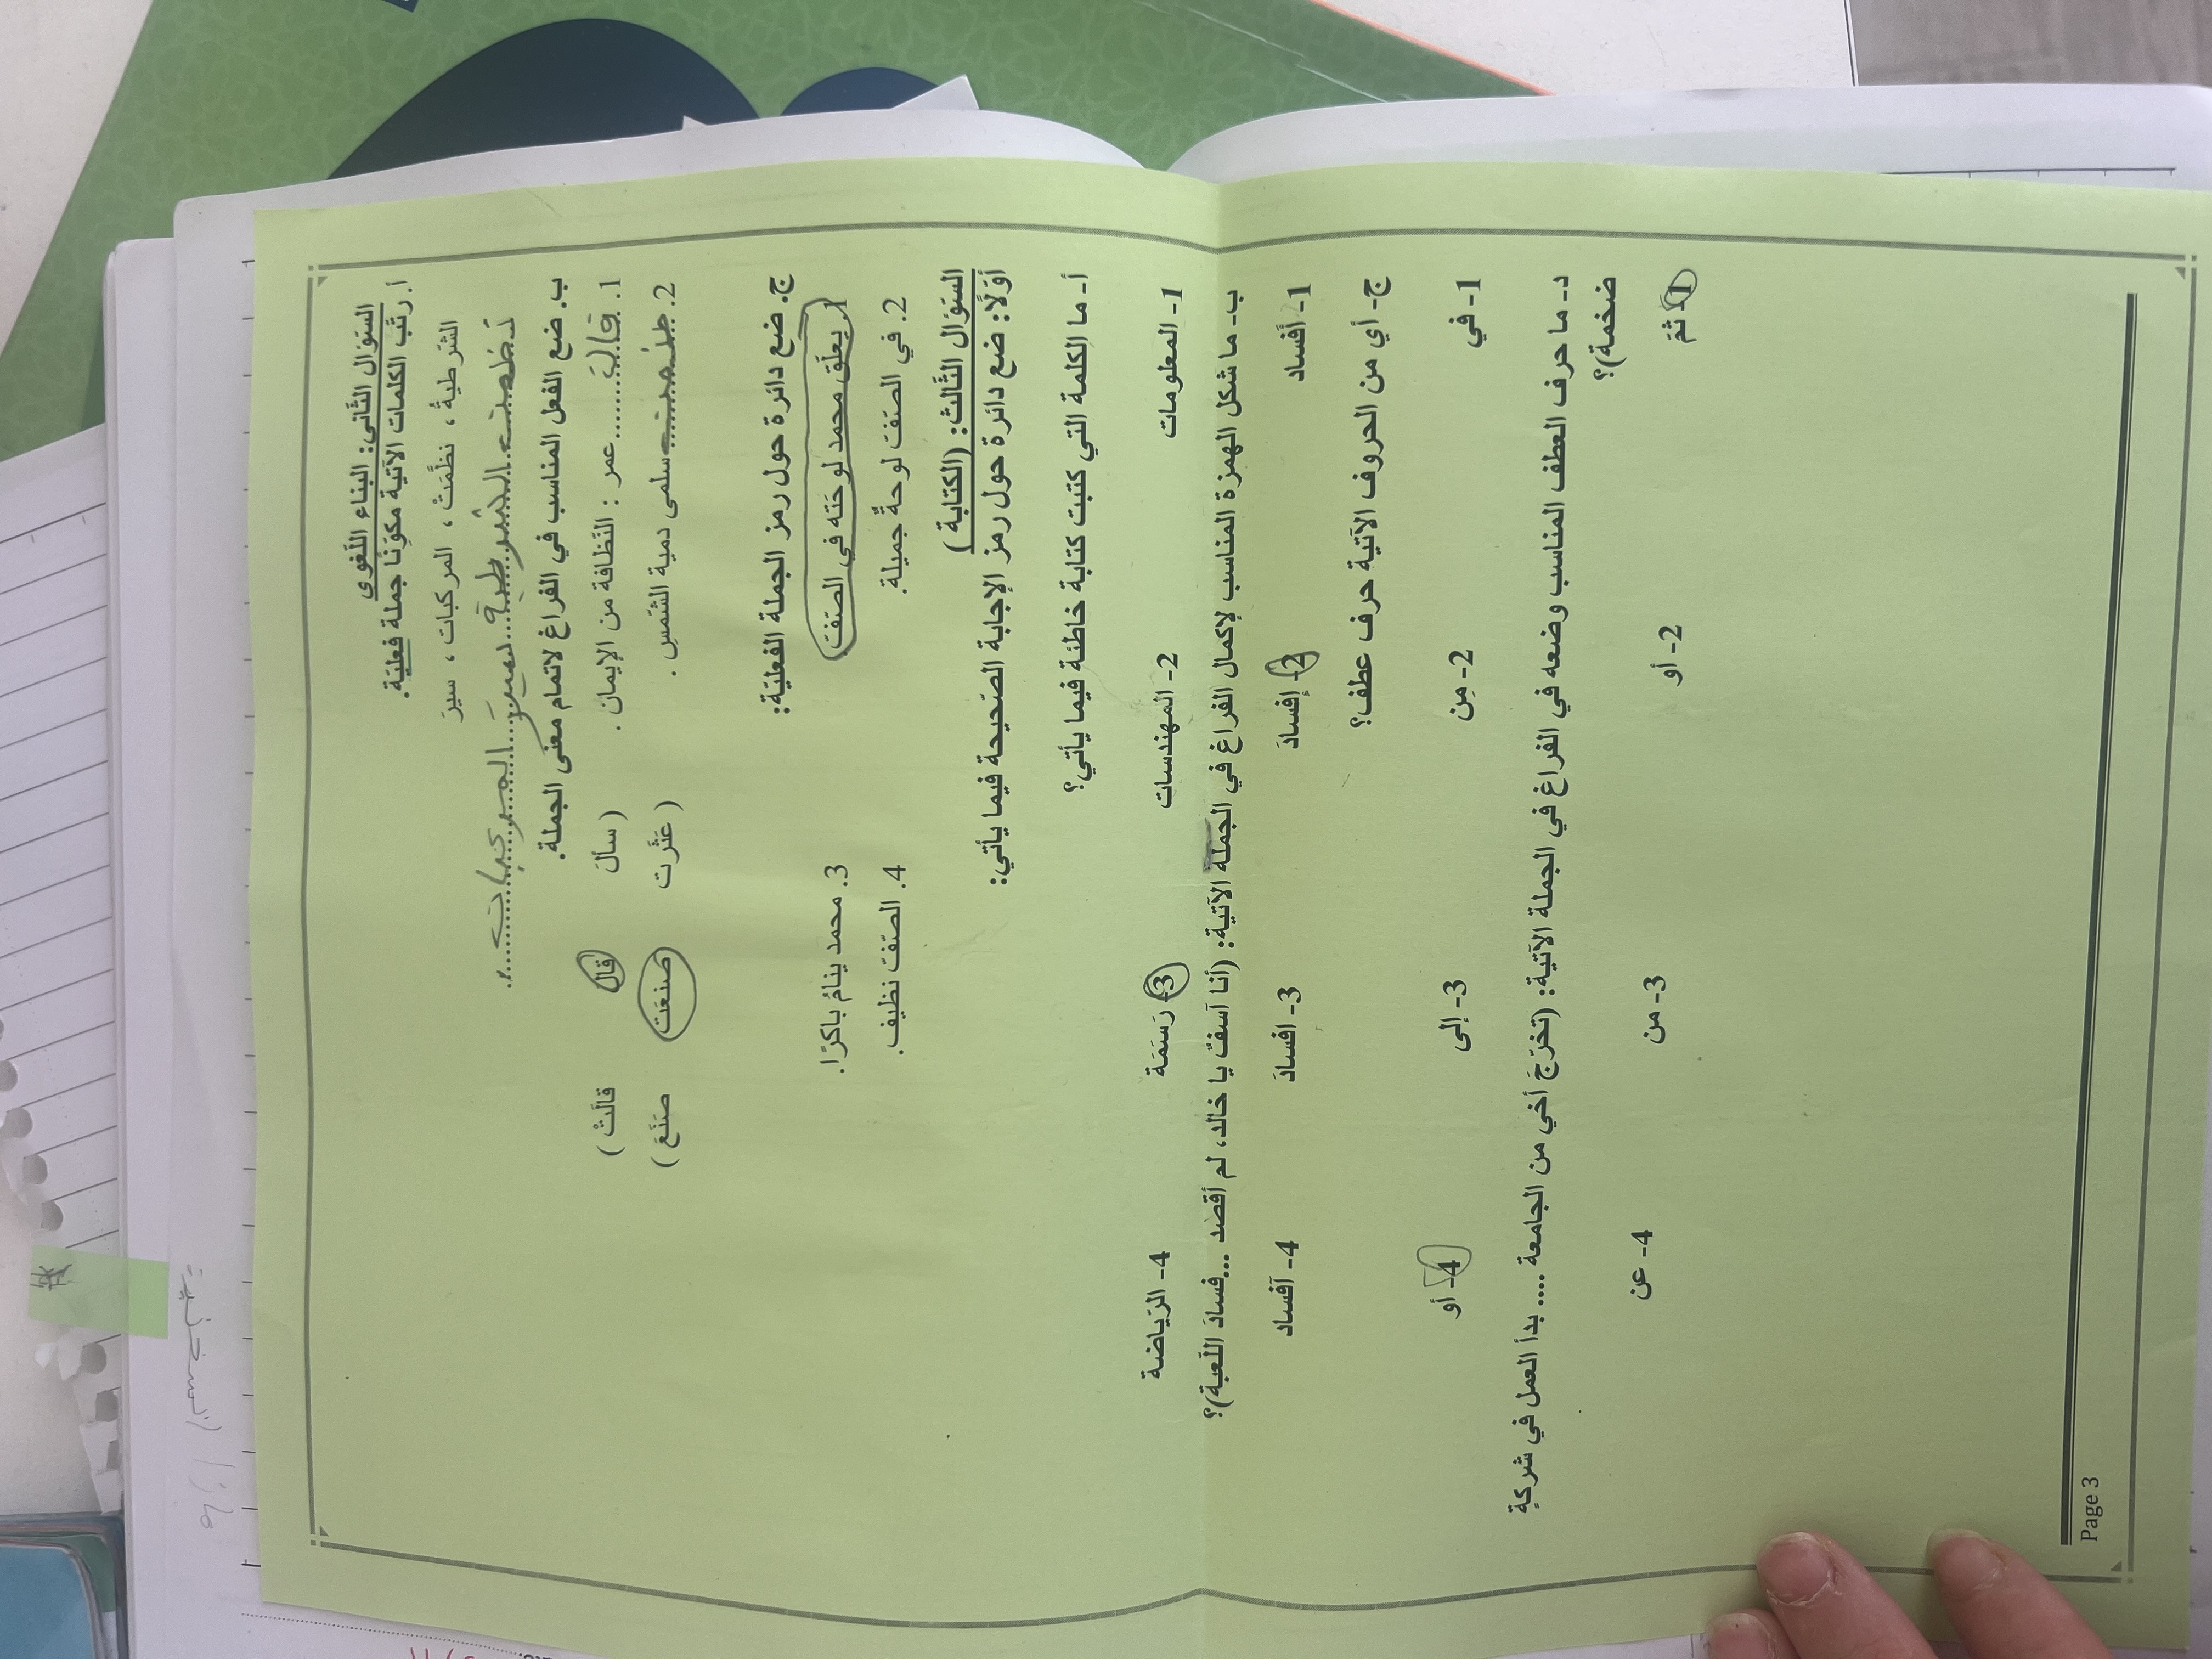 السّؤال الثّاني: البناء اللّغوي
أ. رتّب الكلمات الآتية مكوّنًا جملة فعليّة.
الشرطيةُ ، نظَّمَتْ ، المركبات ، سيرَ
نظمت الشرطية سير المركبات
ب. ضع الفعل المناسب في الفراغ لاتمام معنى الجملة.
1. قال عمر : النّظافة من الإيمان . (سألَ قال قالَتْ)
2. سلمى دمية الشّمسِ . (عَثَرت صنعَت صَنَعَ)
ج. ضع دائرة حول رمز الجملة الفعليّة:
1. يعلّق محمد لوحَتَه في الصّفّ 3. محمد ينامُ باكرًا.
2. في الصّفّ لوحةٌ جميلة. 4. الصّفّ نظيف.
السّؤال الثّالث: (الكتابة )
أوّلًا: ضع دائرة حول رمز الإجابة الصّحيحة فيما يأتي:
أ- ما الكلمة التي كتبت كتابة خاطئة فيما يأتي؟
1- المعلومات 2- المهندسات 3- رَسَمَة 4- الرّياضة
ب- ما شكل الهمزة المناسب لإكمال الفراغ في الجملة الآتية: (أنا آسفٌ يا خالد، لم أقصد ...فسادَ اللّعبة)؟
1- أفساد 2- إفسادَ 3- افسادَ 4- آفساد
ج- أي من الحروف الآتية حرف عطف؟
1- في 2- مِن 3- إلى 4- أو
د- ما حرف العطف المناسب وضعه في الفراغ في الجملة الآتية: (تخرّجَ أخي من الجامعة .... بدأ العمل في شركةٍ
ضخمة)؟
1- ثمّ 2- أو 3- من 4- عن
Page 3